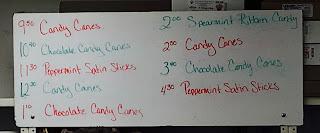 9:30 Candy Canes
10:40 Chocolate Candy Canes
11:30 Peppermint Satin Sticks
12:30 Candy Canes
1:10 Chocolate Candy Canes
2:00 Spearmint Ribbon Candy
2:50 Candy Canes
3:40 Chocolate Candy Canes
4:30 Peppermint Satin Sticks